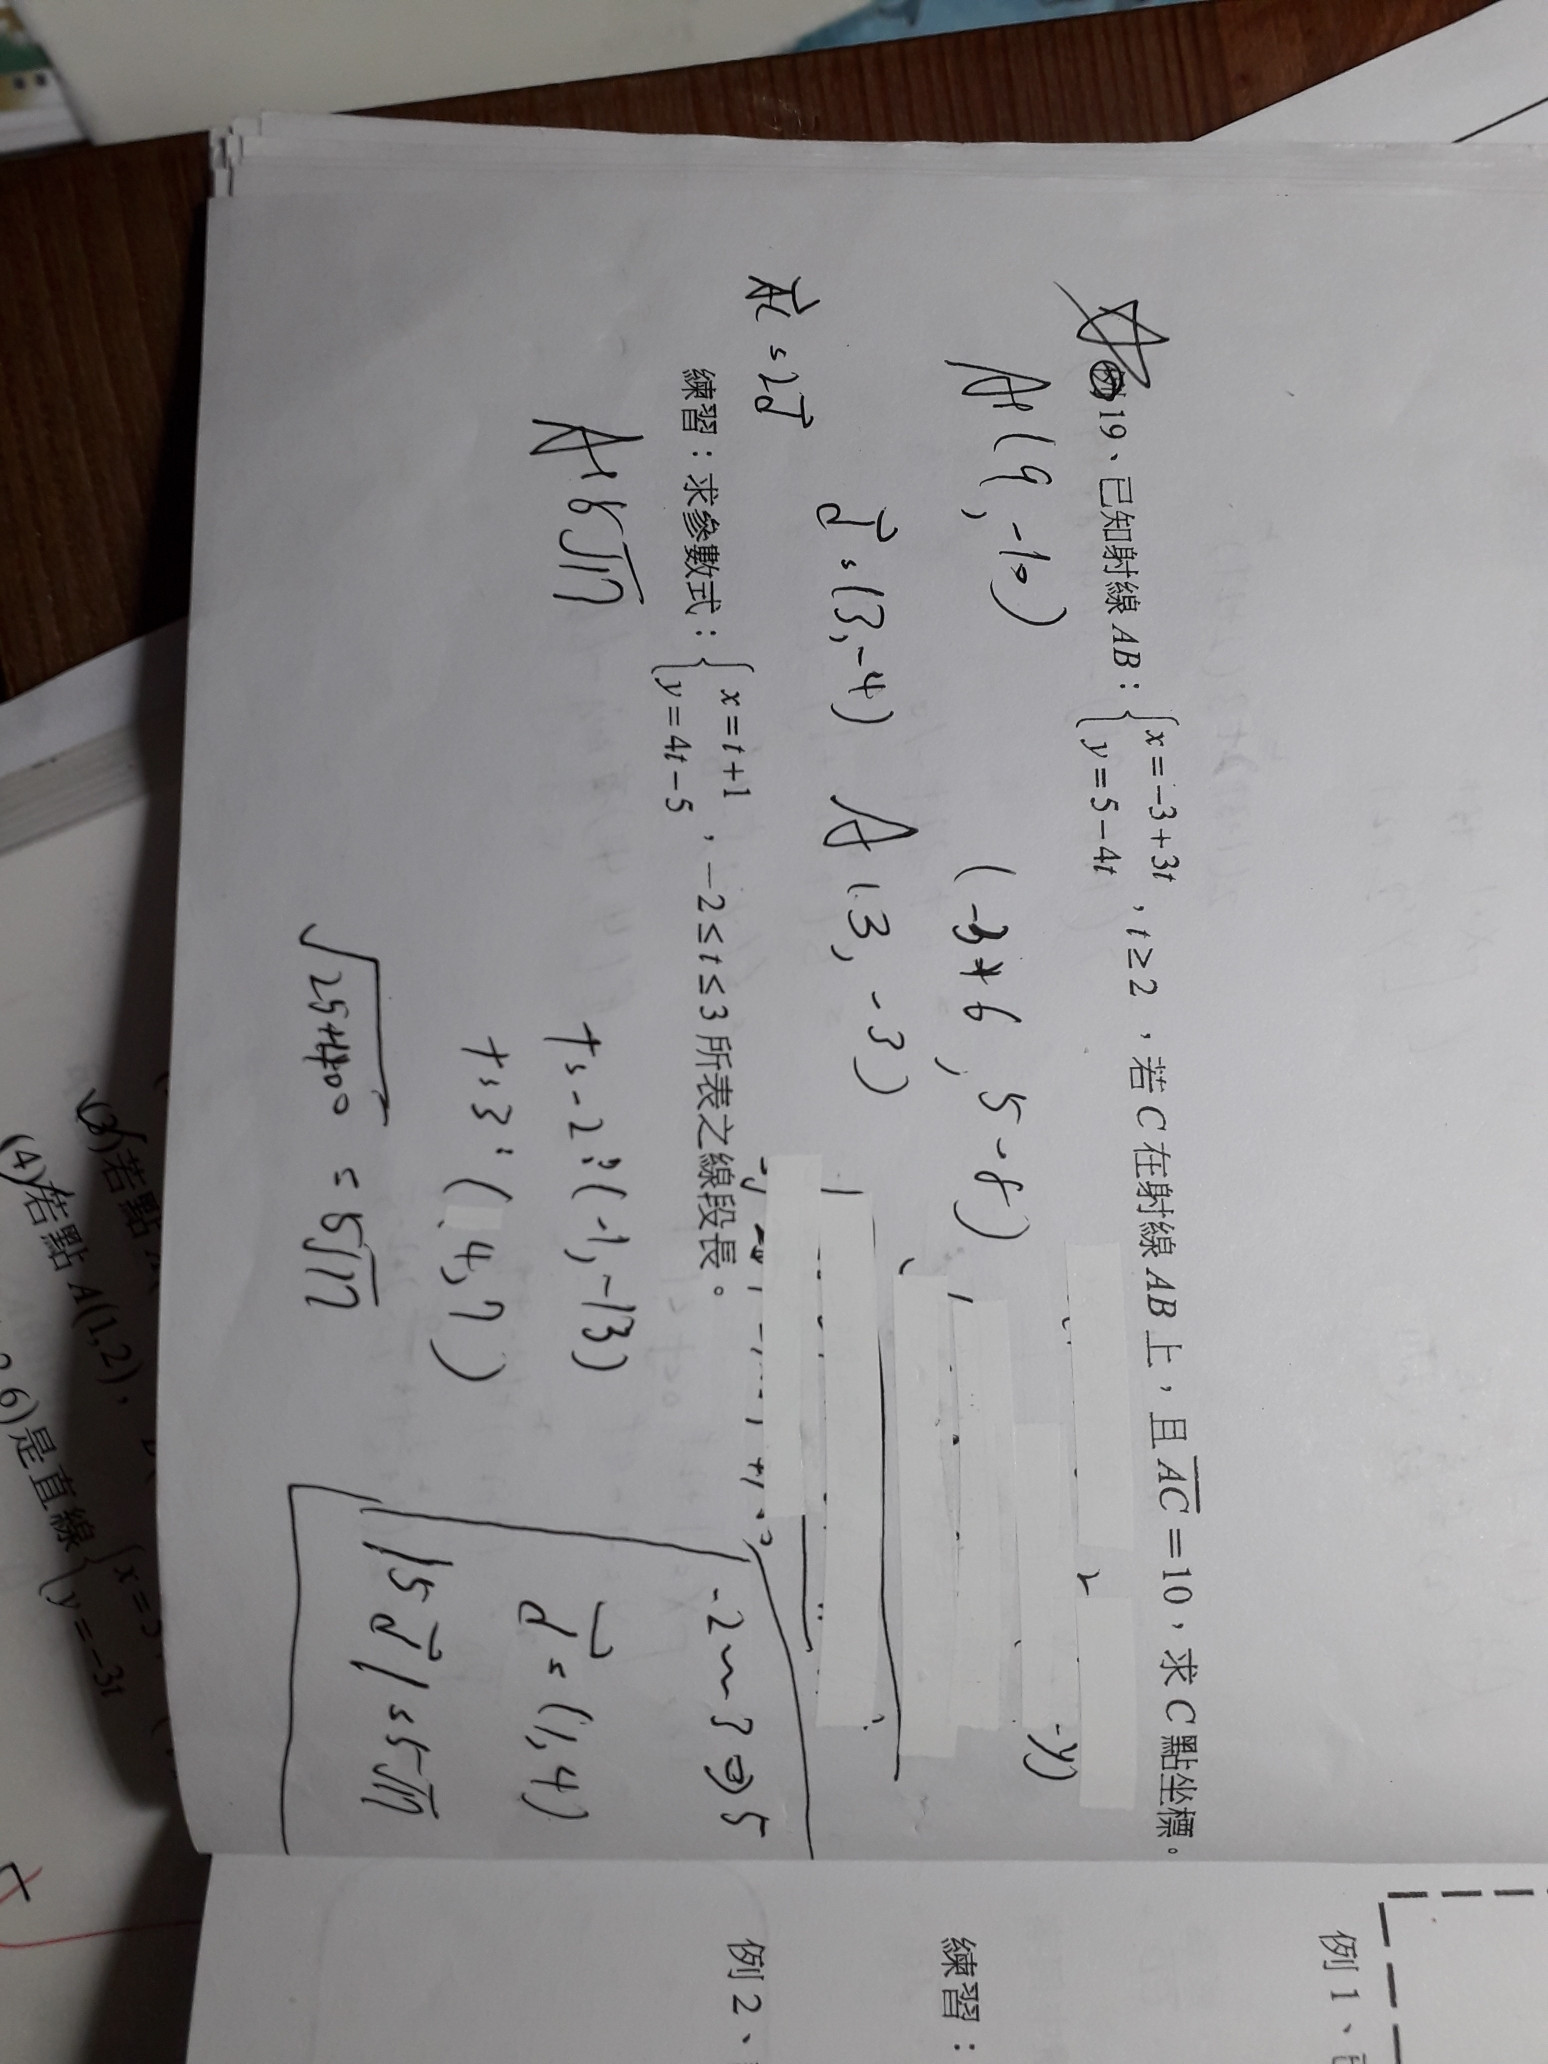 例19、已知射線AB：{x=-3+3t, y=5-4t，t≥2，若C在射線AB上，且AC=10，求C點坐標。
A:(9,-10)
(-3+6, 5-8)
-y)
d=(3,-4) A(3,-3)
AC=2d
練習：求參數式：{x=t+1, y=4t-5，-2≤t≤3所表之線段長。
A:5√17
t=-2:(-1,-13)
t=3:(4,7)
√25+400 = 5√17
-2~3⇒5
d=(1,4)
|5d|=5√17
(3)若點
(4)若點A(1,2)，
6)是直線{x=3
y=-3t
例1、
練習：
例2、